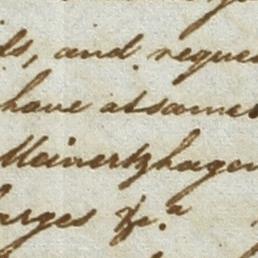 ds, and reques
have at same
Meinertzhagen
arges &c.a